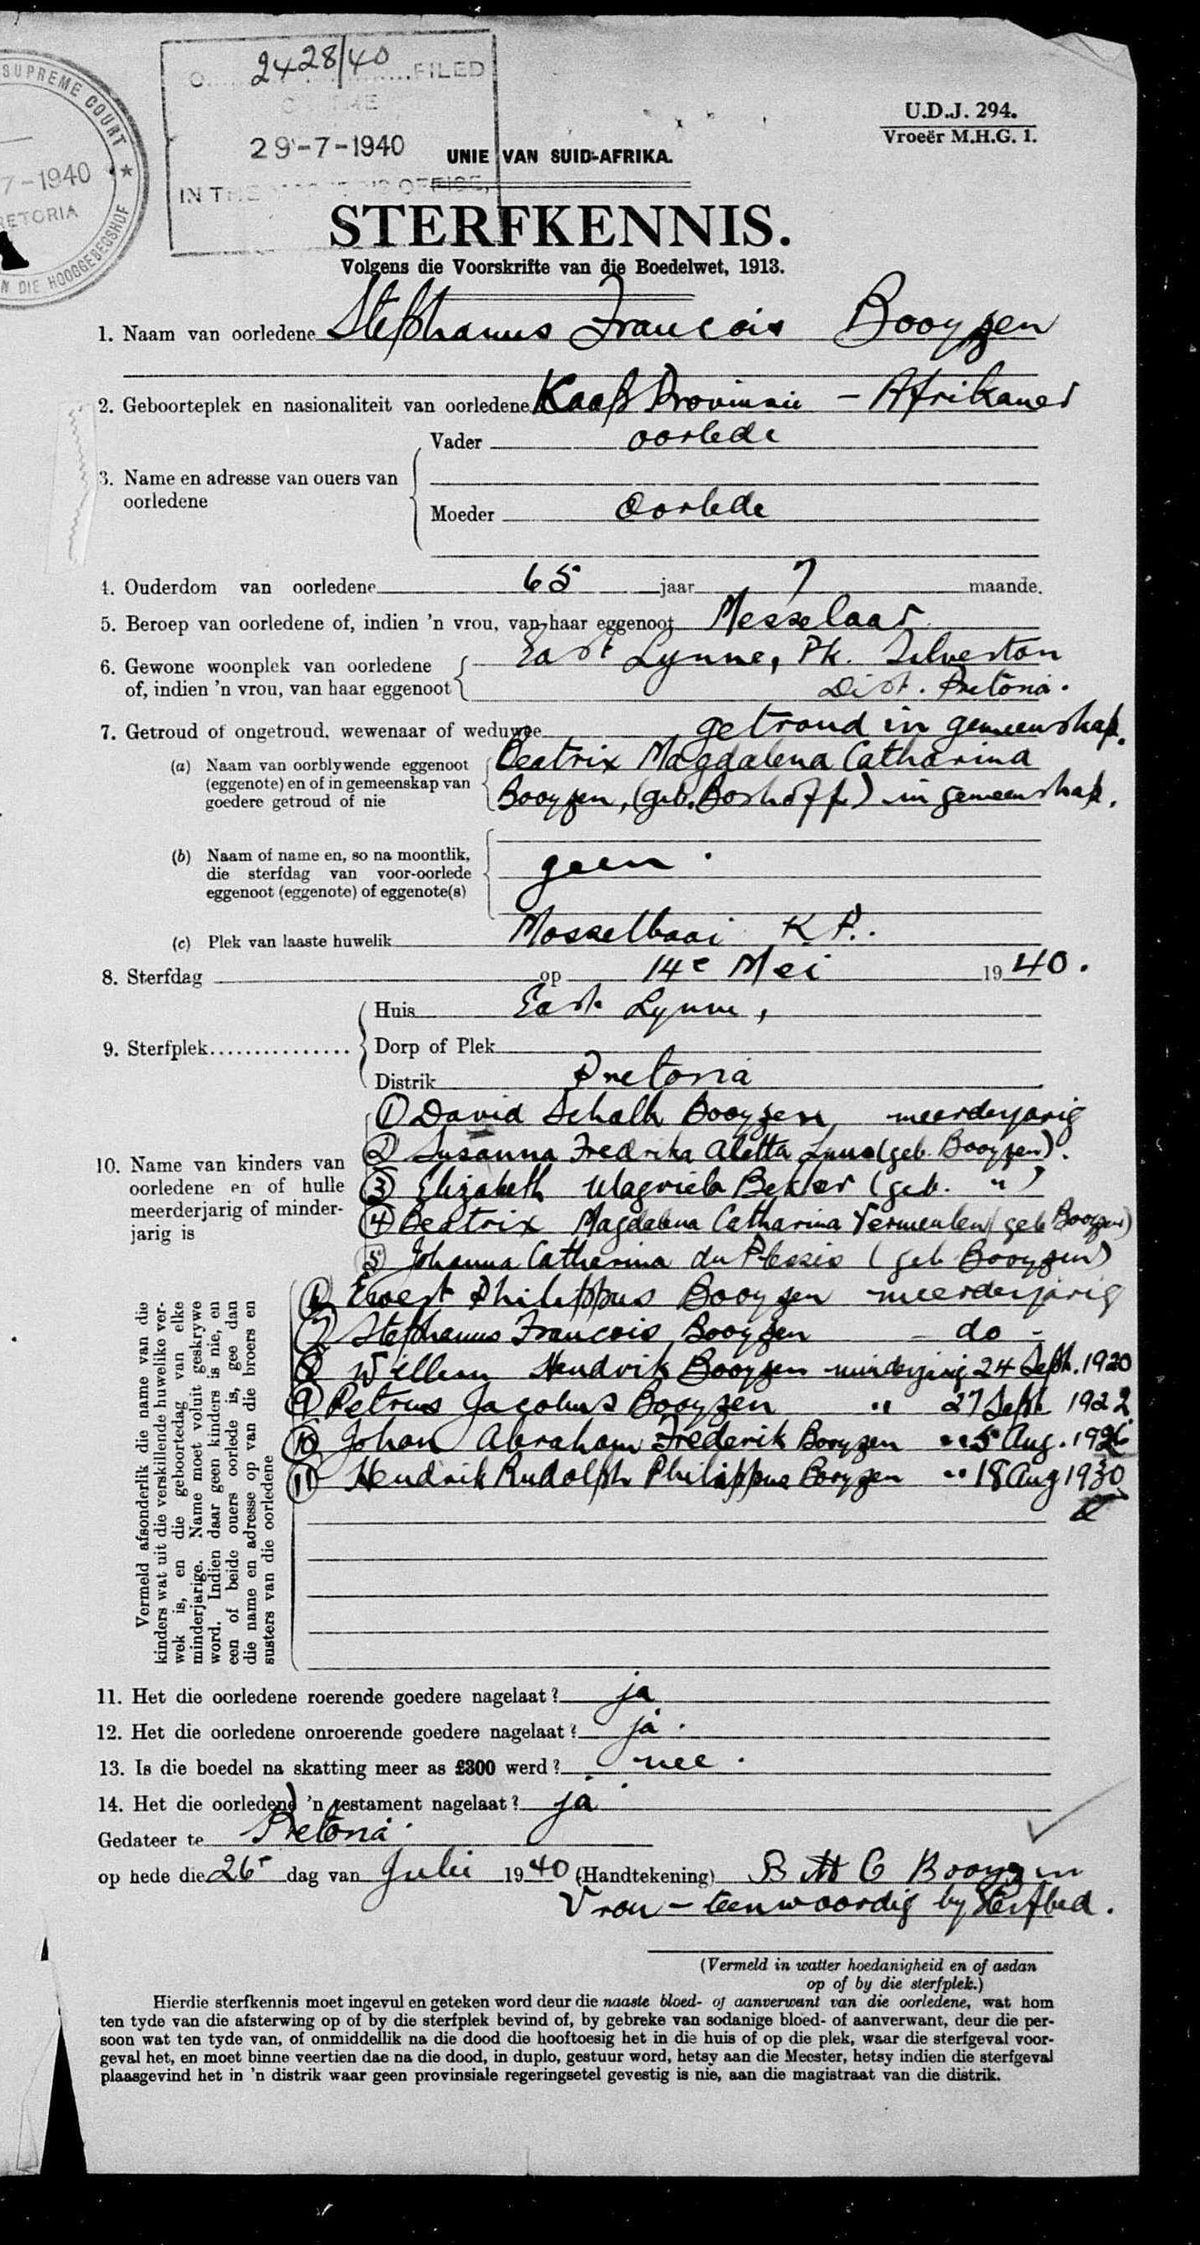 SUPREME COURT
7-1940
RETORIA
N DIE HOOGGEREGSHOF
2428/40
FILED
29-7-1940
IN THE MASTER'S OFFICE,
U.D.J. 294.
Vroeër M.H.G. 1.
UNIE VAN SUID-AFRIKA.
STERFKENNIS.
Volgens die Voorskrifte van die Boedelwet, 1913.
1. Naam van oorledene Stephanus Francois Booyzen
2. Geboorteplek en nasionaliteit van oorledene Kaap Provinsie – Afrikaner
3. Name en adresse van ouers van oorledene
Vader oorlede
Moeder oorlede
4. Ouderdom van oorledene 65 jaar 7 maande.
5. Beroep van oorledene of, indien 'n vrou, van haar eggenoot Messelaar
6. Gewone woonplek van oorledene
of, indien 'n vrou, van haar eggenoot
East Lynne, Pk. Silverton
Dist. Pretoria.
7. Getroud of ongetroud, wewenaar of weduwee getroud in gemeenskap.
(a) Naam van oorblywende eggenoot
(eggenote) en of in gemeenskap van
goedere getroud of nie
Beatrix Magdalena Catharina
Booyzen, (geb. Boshoff) in gemeenskap.
(b) Naam of name en, so na moontlik,
die sterfdag van voor-oorlede
eggenoot (eggenote) of eggenote(s)
geen.
(c) Plek van laaste huwelik Mosselbaai K.P.
8. Sterfdag op 14e Mei 1940.
9. Sterfplek
Huis East Lynne,
Dorp of Plek
Distrik Pretoria
10. Name van kinders van
oorledene en of hulle
meerderjarig of minder-
jarig is
(1) David Schalk Booyzen meerderjarig
(2) Susanna Fredrika Aletta Luus (geb. Booyzen).
(3) Elizabeth Magriela Bekker (geb. ")
(4) Beatrix Magdalena Catharina Vermeulen (geb Booyzen)
(5) Johanna Catharina du Plessis (geb Booyzen)
(6) Evert Philippus Booyzen meerderjarig
(7) Stephanus Francois Booyzen – do –
(8) Willem Hendrik Booyzen minderjarig 24 Sept. 1920
(9) Petrus Jacobus Booyzen " 27 Sept 1922
(10) Johan Abraham Frederik Booyzen " 5 Aug. 1926
(11) Hendrik Rudolph Philippus Booyzen " 18 Aug 1930
Vermeld afsonderlik die name van die
kinders wat uit die verskillende huwelike ver-
wek is, en die geboortedag van elke
minderjarige. Name moet voluit geskrywe
word. Indien daar geen kinders is nie, en
een of beide ouers oorlede is, gee dan
die name en adresse op van die broers en
susters van die oorledene
11. Het die oorledene roerende goedere nagelaat? ja
12. Het die oorledene onroerende goedere nagelaat? ja.
13. Is die boedel na skatting meer as £300 werd? nee.
14. Het die oorledene 'n testament nagelaat? ja
Gedateer te Pretoria.
op hede die 26e dag van Julie 1940 (Handtekening) B M C Booyzen
Vrou – teenwoordig by sterfbed.
(Vermeld in watter hoedanigheid en of asdan
op of by die sterfplek.)
Hierdie sterfkennis moet ingevul en geteken word deur die naaste bloed- of aanverwant van die oorledene, wat hom
ten tyde van die afsterwing op of by die sterfplek bevind of, by gebreke van sodanige bloed- of aanverwant, deur die per-
soon wat ten tyde van, of onmiddellik na die dood die hooftoesig het in die huis of op die plek, waar die sterfgeval voor-
geval het, en moet binne veertien dae na die dood, in duplo, gestuur word, hetsy aan die Meester, hetsy indien die sterfgeval
plaasgevind het in 'n distrik waar geen provinsiale regeringsetel gevestig is nie, aan die magistraat van die distrik.